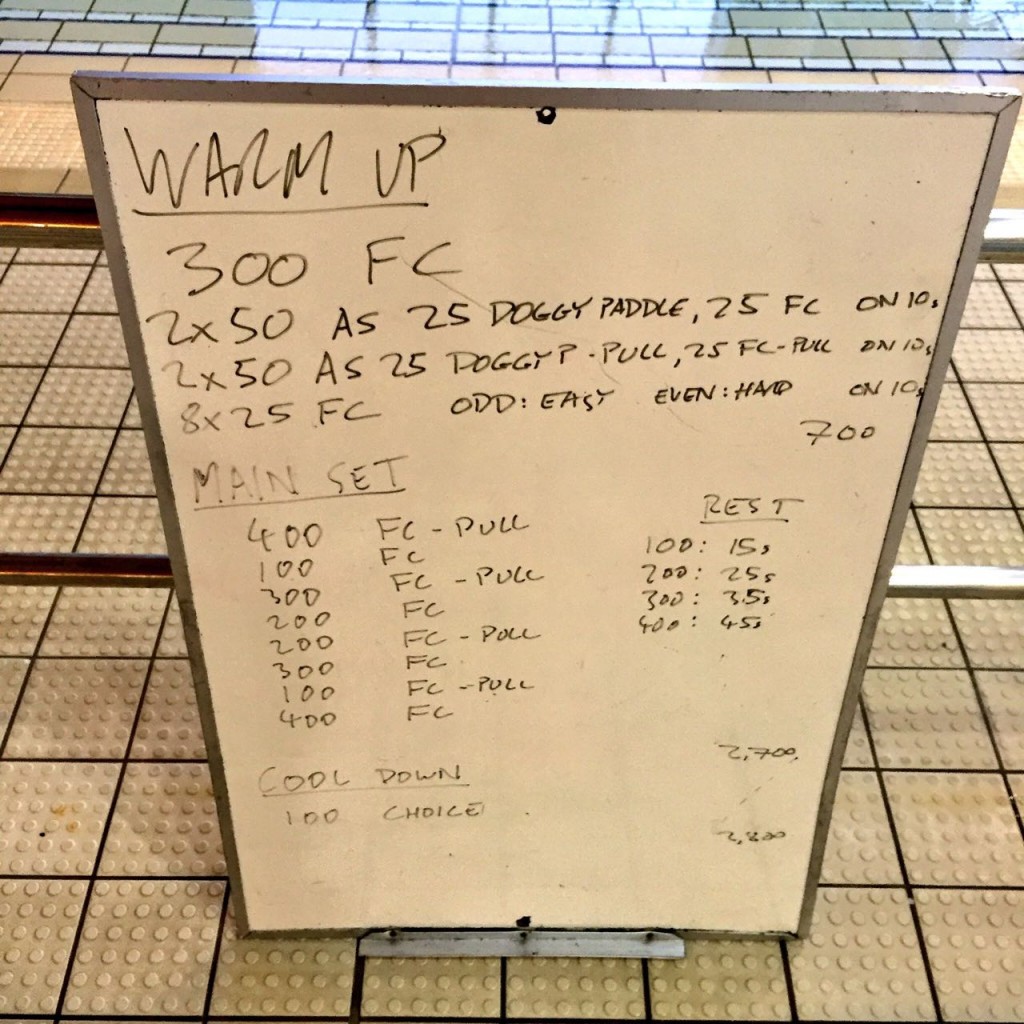 WARM UP
300 FC
2x50 AS 25 DOGGY PADDLE, 25 FC ON 10s
2x50 AS 25 DOGGY P - PULL, 25 FC-PULL ON 10s
8x25 FC ODD: EASY EVEN: HARD ON 10s
700
MAIN SET
REST
400 FC - PULL
100 FC
300 FC - PULL
200 FC
200 FC - PULL
300 FC
100 FC - PULL
400 FC
100: 15s
200: 25s
300: 35s
400: 45s
2,700
COOL DOWN
100 CHOICE
2,800